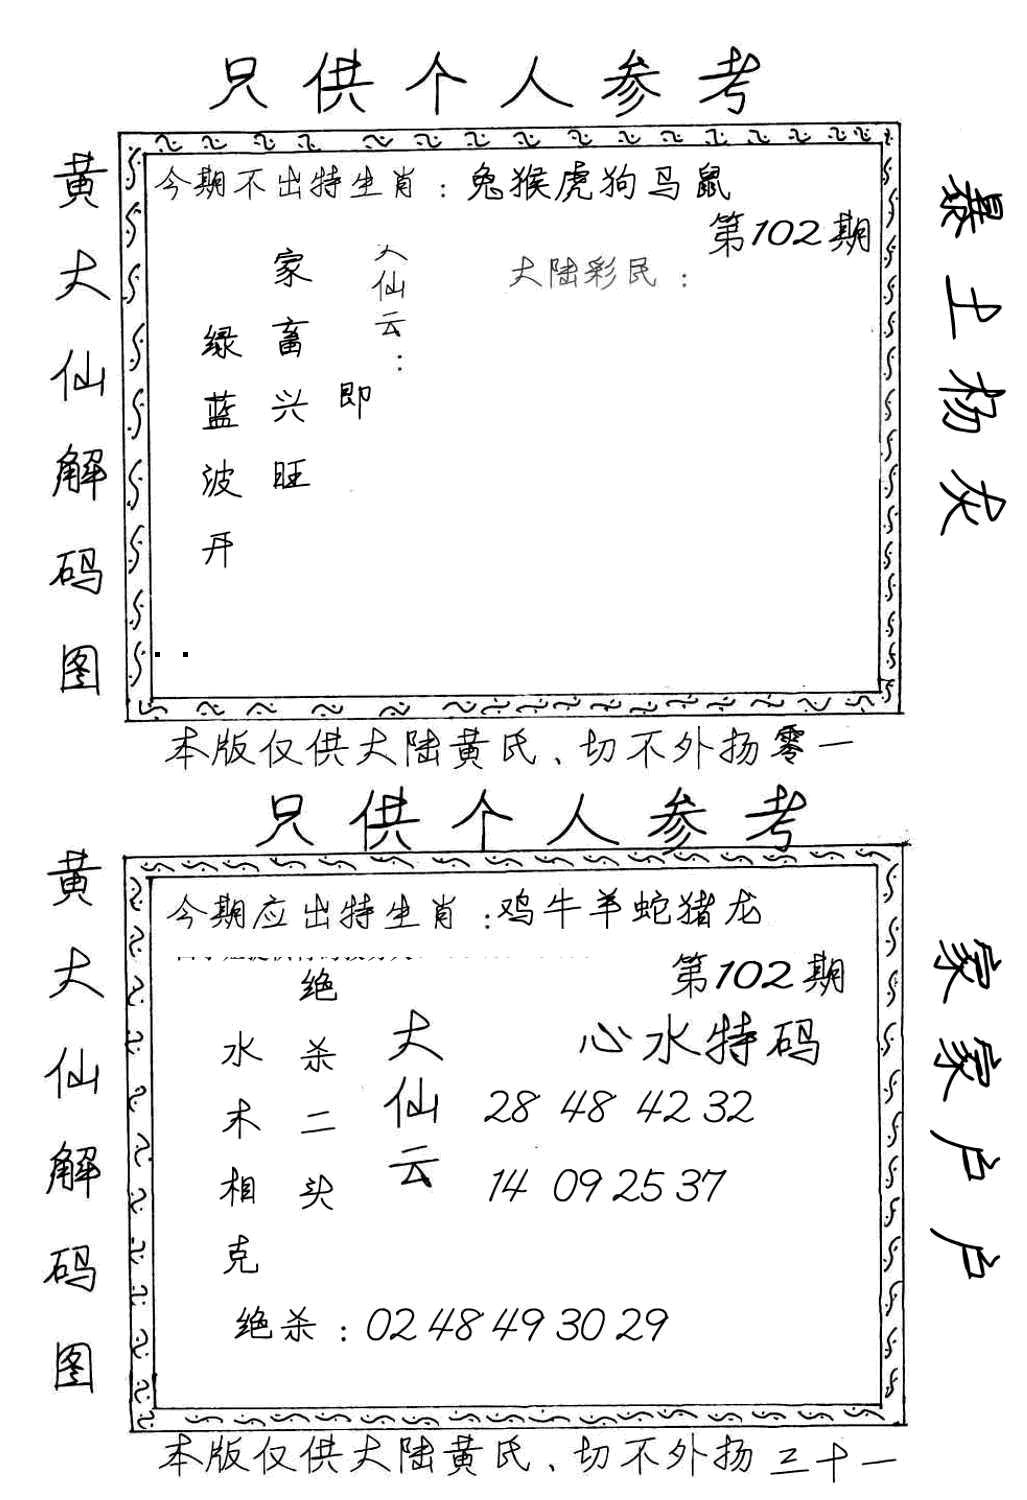 只供个人参考
黄大仙解码图
今期不出特生肖：兔猴虎狗马鼠
第102期
大陆彩民：
大仙云：
即
家畜兴旺
绿蓝波开
暴土杨灰
本版仅供大陆黄氏、切不外扬零一
只供个人参考
黄大仙解码图
今期应出特生肖：鸡牛羊蛇猪龙
第102期
心水特码
大仙云
绝杀二头
水木相克
28 48 42 32
14 09 25 37
绝杀：02 48 49 30 29
家家户户
本版仅供大陆黄氏、切不外扬三十一